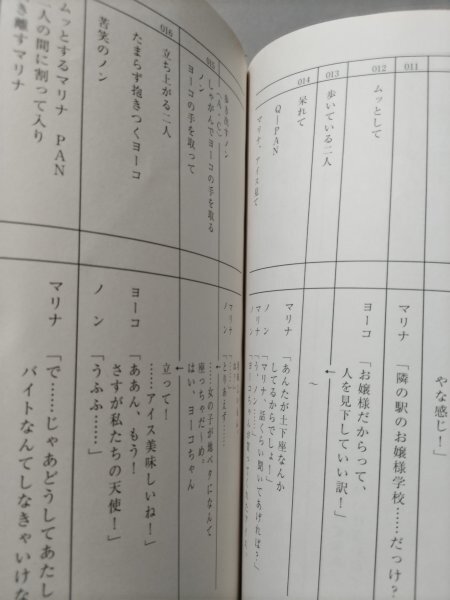 やな感じ！」
011
マリナ 「隣の駅のお嬢様学校……だっけ？」
012
ムッとして
ヨーコ 「お嬢様だからって、
人を見下していい訳！」
013
歩いている二人
～
014
呆れて
マリナ 「あんたが土下座なんか
してるからでしょ！」
Q-PAN
ノン 「マリナ、話くらい聞いてあげれば？」
マリナ、アイス見て
マリナ
015
歩き出すノン
(A・C)
しゃがんでヨーコの手を取る
ノン
「とりあえず……
……女の子が地べたになんて
ヨーコの手を取って
座っちゃだーめ。
はい、ヨーコちゃん
016
立ち上がる二人
立って！
……アイス美味しいね！」
たまらず抱きつくヨーコ
ヨーコ 「ああん、もう！
さすが私たちの天使！」
苦笑のノン
ノン 「うふふ……」
ムッとするマリナ PAN
マリナ 「で……じゃあどうしてあたし
二人の間に割って入り
バイトなんてしなきゃいけな
き離すマリナ